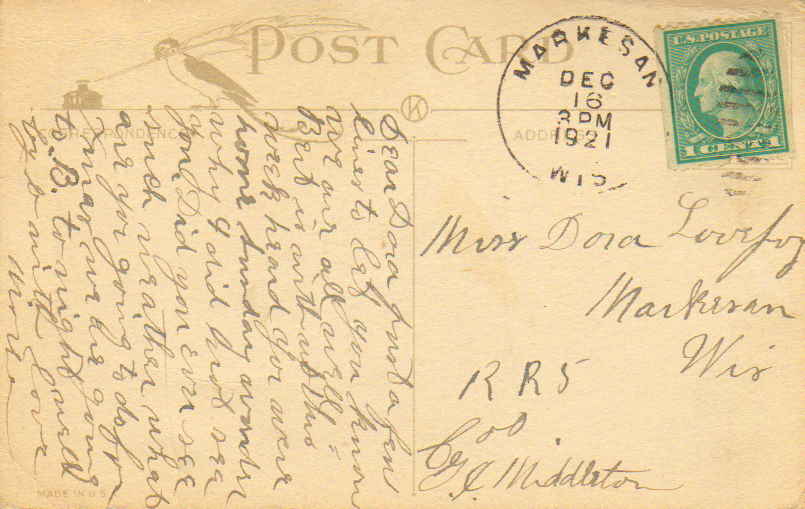 POST CARD
CORRESPONDENCE
ADDRESS
K
MARKESAN
DEC
16
3 PM
1921
WIS
U.S. POSTAGE
1 CENT 1
Dear Dora Just a few
lines to let you know
we are all well =
Bert is with us this
week heard you were
home Sunday wonder
why I did not see
you. Did you ever see
such weather what
are you going to do for
Xmas we are going
to B. to night well
by by with love
Miss Dora Lovejoy
Markesan
Wis
R R 5
C/o
G. C. Middleton
MADE IN U.S.